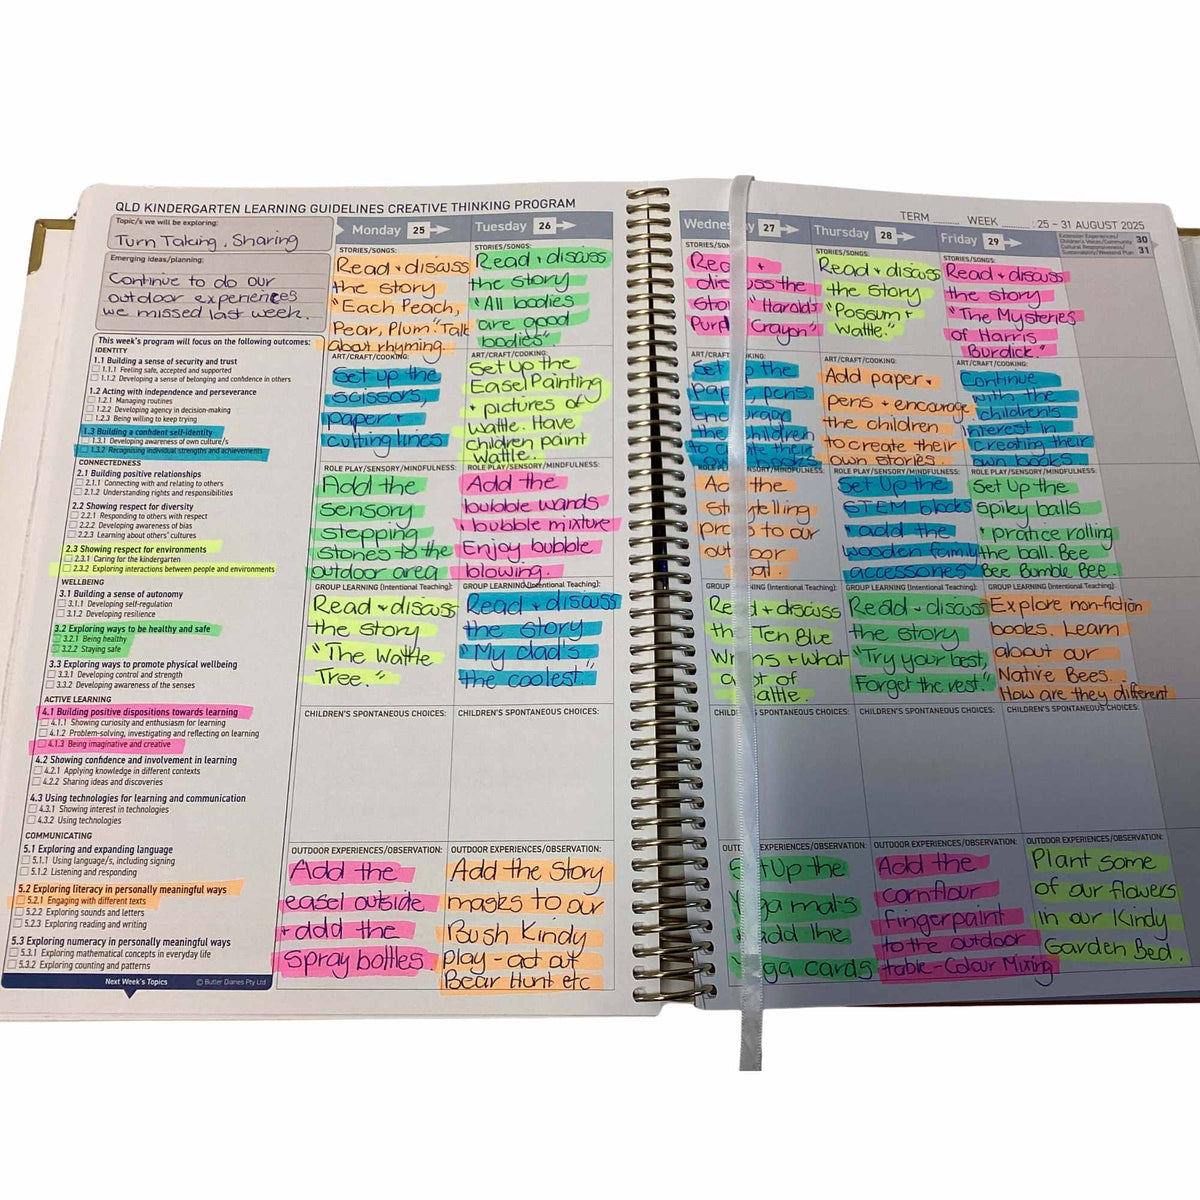 QLD KINDERGARTEN LEARNING GUIDELINES CREATIVE THINKING PROGRAM
Topic/s we will be exploring:
Turn Taking, Sharing
Emerging ideas/planning:
Continue to do our
outdoor experiences
we missed last week.
This week's program will focus on the following outcomes:
IDENTITY
1.1 Building a sense of security and trust
1.1.1 Feeling safe, accepted and supported
1.1.2 Developing a sense of belonging and confidence in others
1.2 Acting with independence and perseverance
1.2.1 Managing routines
1.2.2 Developing agency in decision-making
1.2.3 Being willing to keep trying
1.3 Building a confident self-identity
1.3.1 Developing awareness of own culture/s
1.3.2 Recognising individual strengths and achievements
CONNECTEDNESS
2.1 Building positive relationships
2.1.1 Connecting with and relating to others
2.1.2 Understanding rights and responsibilities
2.2 Showing respect for diversity
2.2.1 Responding to others with respect
2.2.2 Developing awareness of bias
2.2.3 Learning about others' cultures
2.3 Showing respect for environments
2.3.1 Caring for the kindergarten
2.3.2 Exploring interactions between people and environments
WELLBEING
3.1 Building a sense of autonomy
3.1.1 Developing self-regulation
3.1.2 Developing resilience
3.2 Exploring ways to be healthy and safe
3.2.1 Being healthy
3.2.2 Staying safe
3.3 Exploring ways to promote physical wellbeing
3.3.1 Developing control and strength
3.3.2 Developing awareness of the senses
ACTIVE LEARNING
4.1 Building positive dispositions towards learning
4.1.1 Showing curiosity and enthusiasm for learning
4.1.2 Problem-solving, investigating and reflecting on learning
4.1.3 Being imaginative and creative
4.2 Showing confidence and involvement in learning
4.2.1 Applying knowledge in different contexts
4.2.2 Sharing ideas and discoveries
4.3 Using technologies for learning and communication
4.3.1 Showing interest in technologies
4.3.2 Using technologies
COMMUNICATING
5.1 Exploring and expanding language
5.1.1 Using language/s, including signing
5.1.2 Listening and responding
5.2 Exploring literacy in personally meaningful ways
5.2.1 Engaging with different texts
5.2.2 Exploring sounds and letters
5.2.3 Exploring reading and writing
5.3 Exploring numeracy in personally meaningful ways
5.3.1 Exploring mathematical concepts in everyday life
5.3.2 Exploring counting and patterns
Next Week's Topics
© Butler Diaries Pty Ltd
Monday 25
STORIES/SONGS:
Read + discuss
the story
"Each Peach,
Pear, Plum" Talk
about rhyming.
ART/CRAFT/COOKING:
Set up the
scissors,
paper +
cutting lines
ROLE PLAY/SENSORY/MINDFULNESS:
Add the
sensory
stepping
stones to the
outdoor area
GROUP LEARNING (Intentional Teaching):
Read + discuss
the story
"The Wattle
Tree."
CHILDREN'S SPONTANEOUS CHOICES:
OUTDOOR EXPERIENCES/OBSERVATION:
Add the
easel outside
+ add the
Spray bottles.
Tuesday 26
STORIES/SONGS:
Read + discuss
the story
"All bodies
are good
bodies".
ART/CRAFT/COOKING:
Set up the
Easel Painting
+ pictures of
wattle. Have
children paint
wattle.
ROLE PLAY/SENSORY/MINDFULNESS:
Add the
bubble wands
+ bubble mixture
Enjoy bubble
blowing.
GROUP LEARNING (Intentional Teaching):
Read + discuss
the story
"My dad's
the coolest."
CHILDREN'S SPONTANEOUS CHOICES:
OUTDOOR EXPERIENCES/OBSERVATION:
Add the Story
masks to our
Bush Kindy
play - act out
Bear Hunt etc
TERM WEEK : 25 – 31 AUGUST 2025
Wednes y 27
STORIES/SONGS:
Read +
discuss the
Story "Harold's
Purple Crayon"
ART/CRAFT/COOKING:
Set up the
paper, pens.
Encourage
the children
to create their
own books
ROLE PLAY/SENSORY/MINDFULNESS:
Add the
storytelling
props to our
outdoor
GROUP LEARNING (Intentional Teaching):
Read + discuss
the Ten Blue
Wrens + what
a lot of
wattle.
CHILDREN'S SPONTANEOUS CHOICES:
OUTDOOR EXPERIENCES/OBSERVATION:
Set Up the
Yoga mats
+ add the
Yoga cards
Thursday 28
STORIES/SONGS:
Read + discuss
the story
"Possum +
Wattle."
ART/CRAFT/COOKING:
Add paper +
pens + encourage
the children
to create their
own stories.
ROLE PLAY/SENSORY/MINDFULNESS:
Set Up the
STEM blocks
+ add the
wooden family
accessories
GROUP LEARNING (Intentional Teaching):
Read + discuss
the story
"Try your best,
Forget the rest."
CHILDREN'S SPONTANEOUS CHOICES:
OUTDOOR EXPERIENCES/OBSERVATION:
Add the
cornflour
fingerpaint
to the outdoor
table - Colour Mixing
Friday 29
STORIES/SONGS:
Read + discuss
the story
"The Mysteries
of Harris
Burdick."
ART/CRAFT/COOKING:
Continue
with the
children's
interest in
creating their
own books
ROLE PLAY/SENSORY/MINDFULNESS:
Set Up the
Spikey balls
+ pratice rolling
the ball. Bee
Bee Bumble Bee.
GROUP LEARNING (Intentional Teaching):
Explore non-fiction
books. Learn
about our
Native Bees.
How are they different
CHILDREN'S SPONTANEOUS CHOICES:
OUTDOOR EXPERIENCES/OBSERVATION:
Plant some
of our flowers
in our Kindy
Garden Bed.
Extension Experiences/
Children's Voices/Community
Cultural Responsiveness/
Sustainability/Weekend Plan
30
31